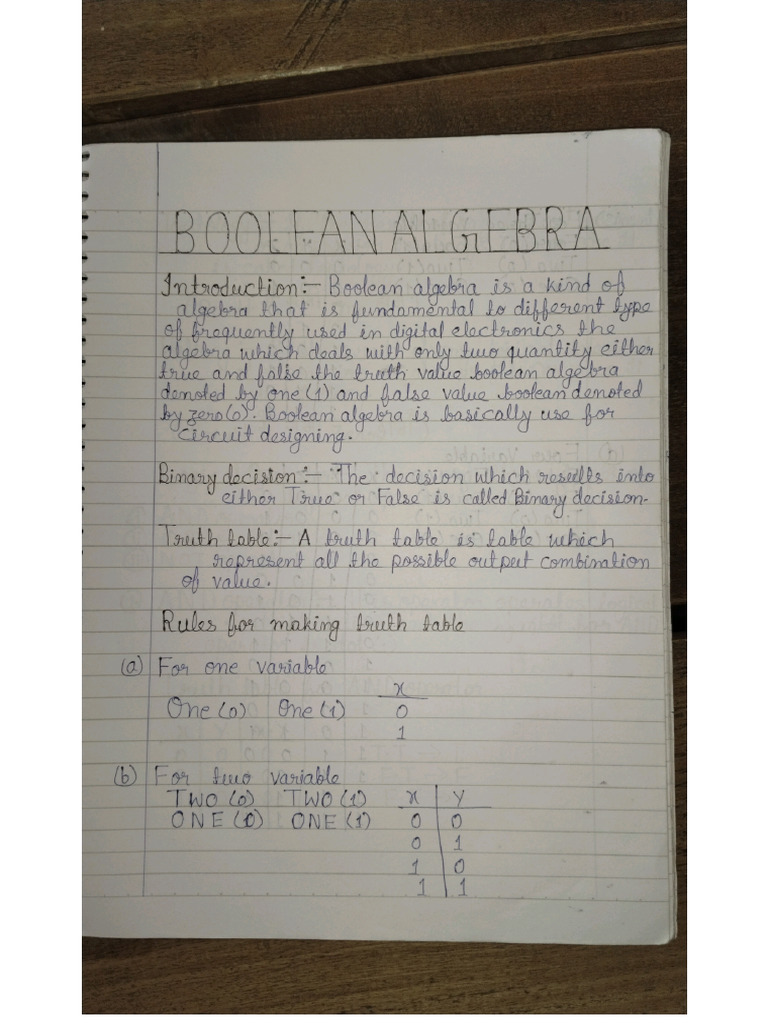 BOOLEAN ALGEBRA
Introduction:- Boolean algebra is a kind of
algebra that is fundamental to different type
of frequently used in digital electronics the
algebra which deals with only two quantity either
true and false the truth value boolean algebra
denoted by one (1) and false value boolean denoted
by zero (0). Boolean algebra is basically use for
circuit designing.
Binary decision:- The decision which results into
either True or False is called Binary decision-
Truth table:- A truth table is table which
represent all the possible output combination
of value.
Rules for making truth table
(a) For one variable
x
One (0) One (1) 0
1
(b) For two variable
TWO (0) TWO (1) x Y
ONE (0) ONE (1) 0 0
0 1
1 0
1 1